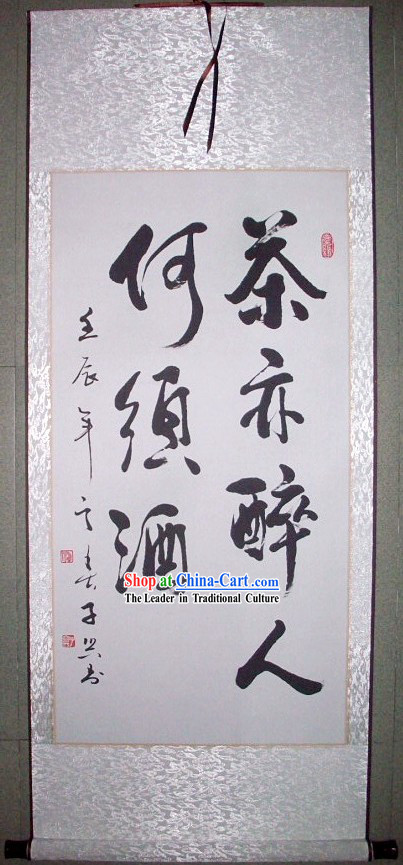 茶亦醉人
何須酒
壬辰年
Shop at China-Cart.com
The Leader in Traditional Culture